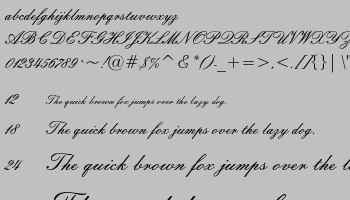 abcdefghijklmnopqrstuvwxyz
ABCDEFGHIJKLMNOPQRSTUVWXYZ
0123456789·~!@#$%^&*()-_+=>,<./[{}|\"
12 The quick brown fox jumps over the lazy dog.
18 The quick brown fox jumps over the lazy dog.
24 The quick brown fox jumps over the